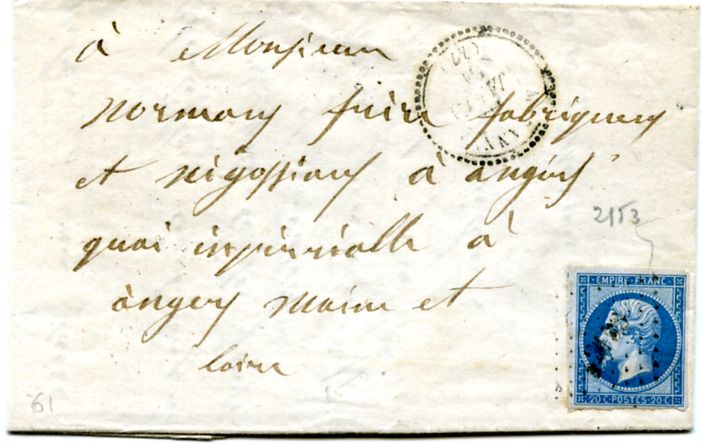 à Monsieur
normang frère fabriqueng
et négossiang à angers
quai inpérialle à
angers maine et
loire
2153
EMPIRE FRANC
20 C POSTES 20 C
61